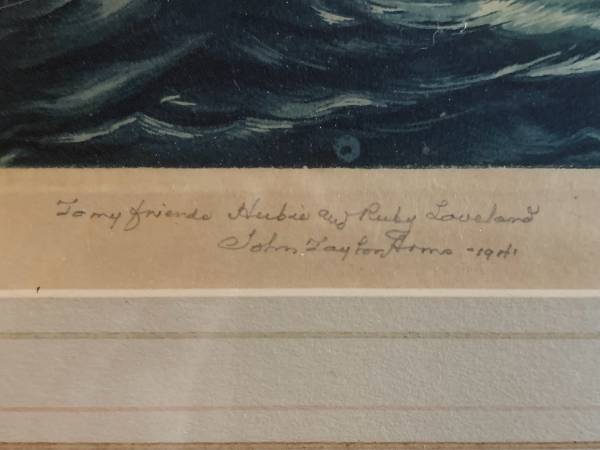 To my friends Herbie and Ruby Loveland
John Taylor Arms - 1941